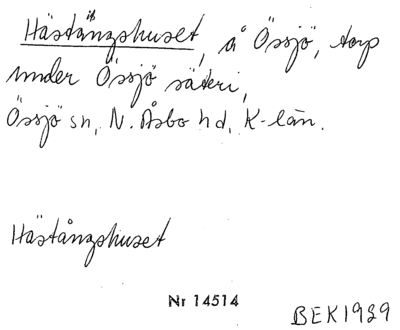 Hästångshuset, å Össjö, torp
under Össjö säteri,
Össjö sn, N. Åsbo hd, K-län.
Hästångshuset
Nr 14514
BEK1939